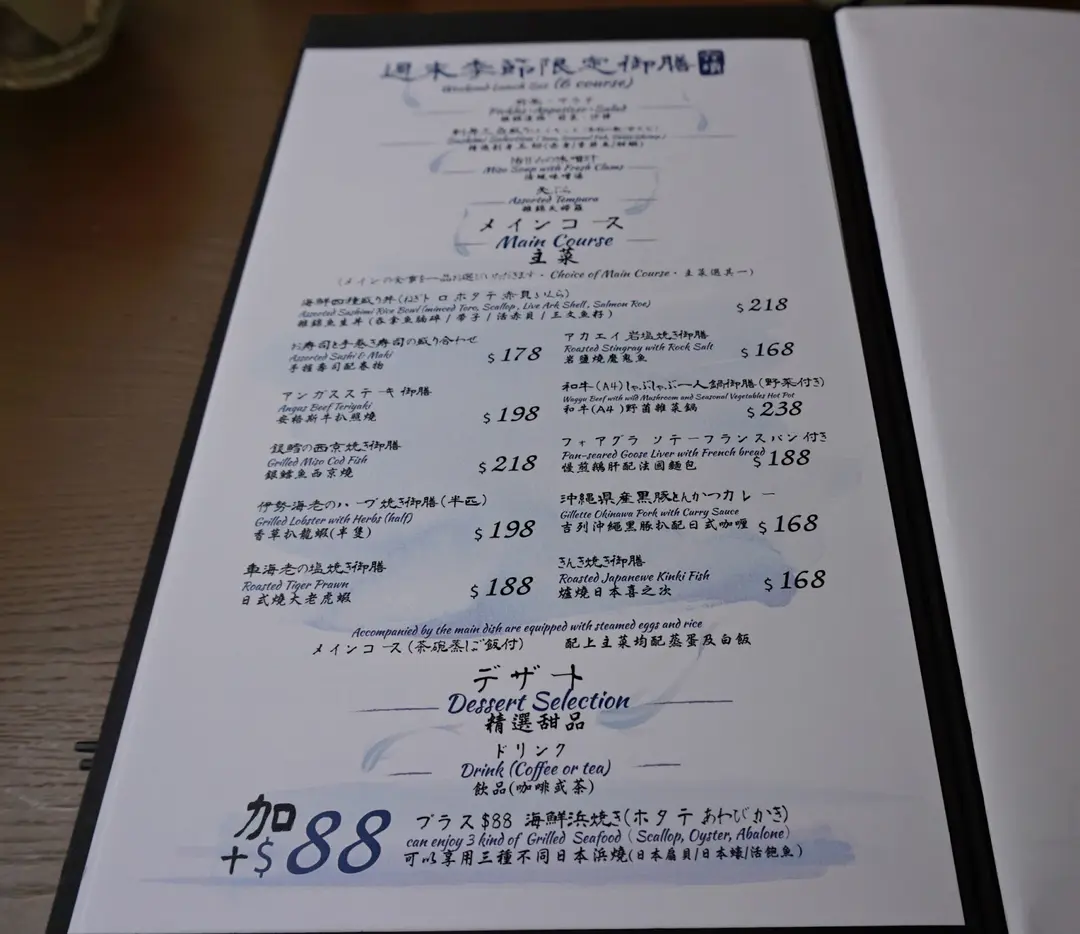 週末季節限定御膳
Weekend Lunch Set (6 course)
Pickles・Appetizer・Salad
Miso Soup with Fresh Clams
Assorted Tempura
雜錦天婦羅
メインコース
Main Course
主菜
Choice of Main Course・主菜選其一)
海鮮四種盛り丼(ねぎトロ ホタテ 赤貝 いくら)
Assorted Sashimi Rice Bowl (minced Toro, Scallop, Live Ark Shell, Salmon Roe)
雜錦魚生丼(吞拿魚腩碎/帶子/活赤貝/三文魚籽)
$218
お寿司と手巻き寿司の盛り合わせ
Assorted Sushi & Maki
手握壽司配卷物
$178
アカエイ 岩塩焼き御膳
Roasted Stingray with Rock Salt
岩鹽燒魔鬼魚
$168
アンガスステーキ 御膳
Angus Beef Teriyaki
安格斯牛扒照燒
$198
和牛(A4)しゃぶしゃぶ一人鍋御膳(野菜付き)
Wagyu Beef with wild Mushroom and Seasonal Vegetables Hot Pot
和牛(A4)野菌雜菜鍋
$238
銀鱈の西京焼き御膳
Grilled Miso Cod Fish
銀鱈魚西京燒
$218
フォアグラ ソテーフランスパン付き
Pan-seared Goose Liver with French bread
慢煎鵝肝配法國麵包
$188
伊勢海老のハーブ焼き御膳(半匹)
Grilled Lobster with Herbs (half)
香草扒龍蝦(半隻)
$198
沖縄県産黒豚とんかつカレー
Gillette Okinawa Pork with Curry Sauce
吉列沖繩黑豚扒配日式咖喱
$168
車海老の塩焼き御膳
Roasted Tiger Prawn
日式燒大老虎蝦
$188
きんき焼き御膳
Roasted Japanewe Kinki Fish
爐燒日本喜之次
$168
Accompanied by the main dish are equipped with steamed eggs and rice
メインコース(茶碗蒸しご飯付) 配上主菜均配蒸蛋及白飯
デザート
Dessert Selection
精選甜品
ドリンク
Drink (Coffee or tea)
飲品(咖啡或茶)
加
+$88
プラス$88 海鮮浜焼き(ホタテ あわび かき)
can enjoy 3 kind of Grilled Seafood (Scallop, Oyster, Abalone)
可以享用三種不同日本浜燒(日本扇貝/日本蠔/活鮑魚)